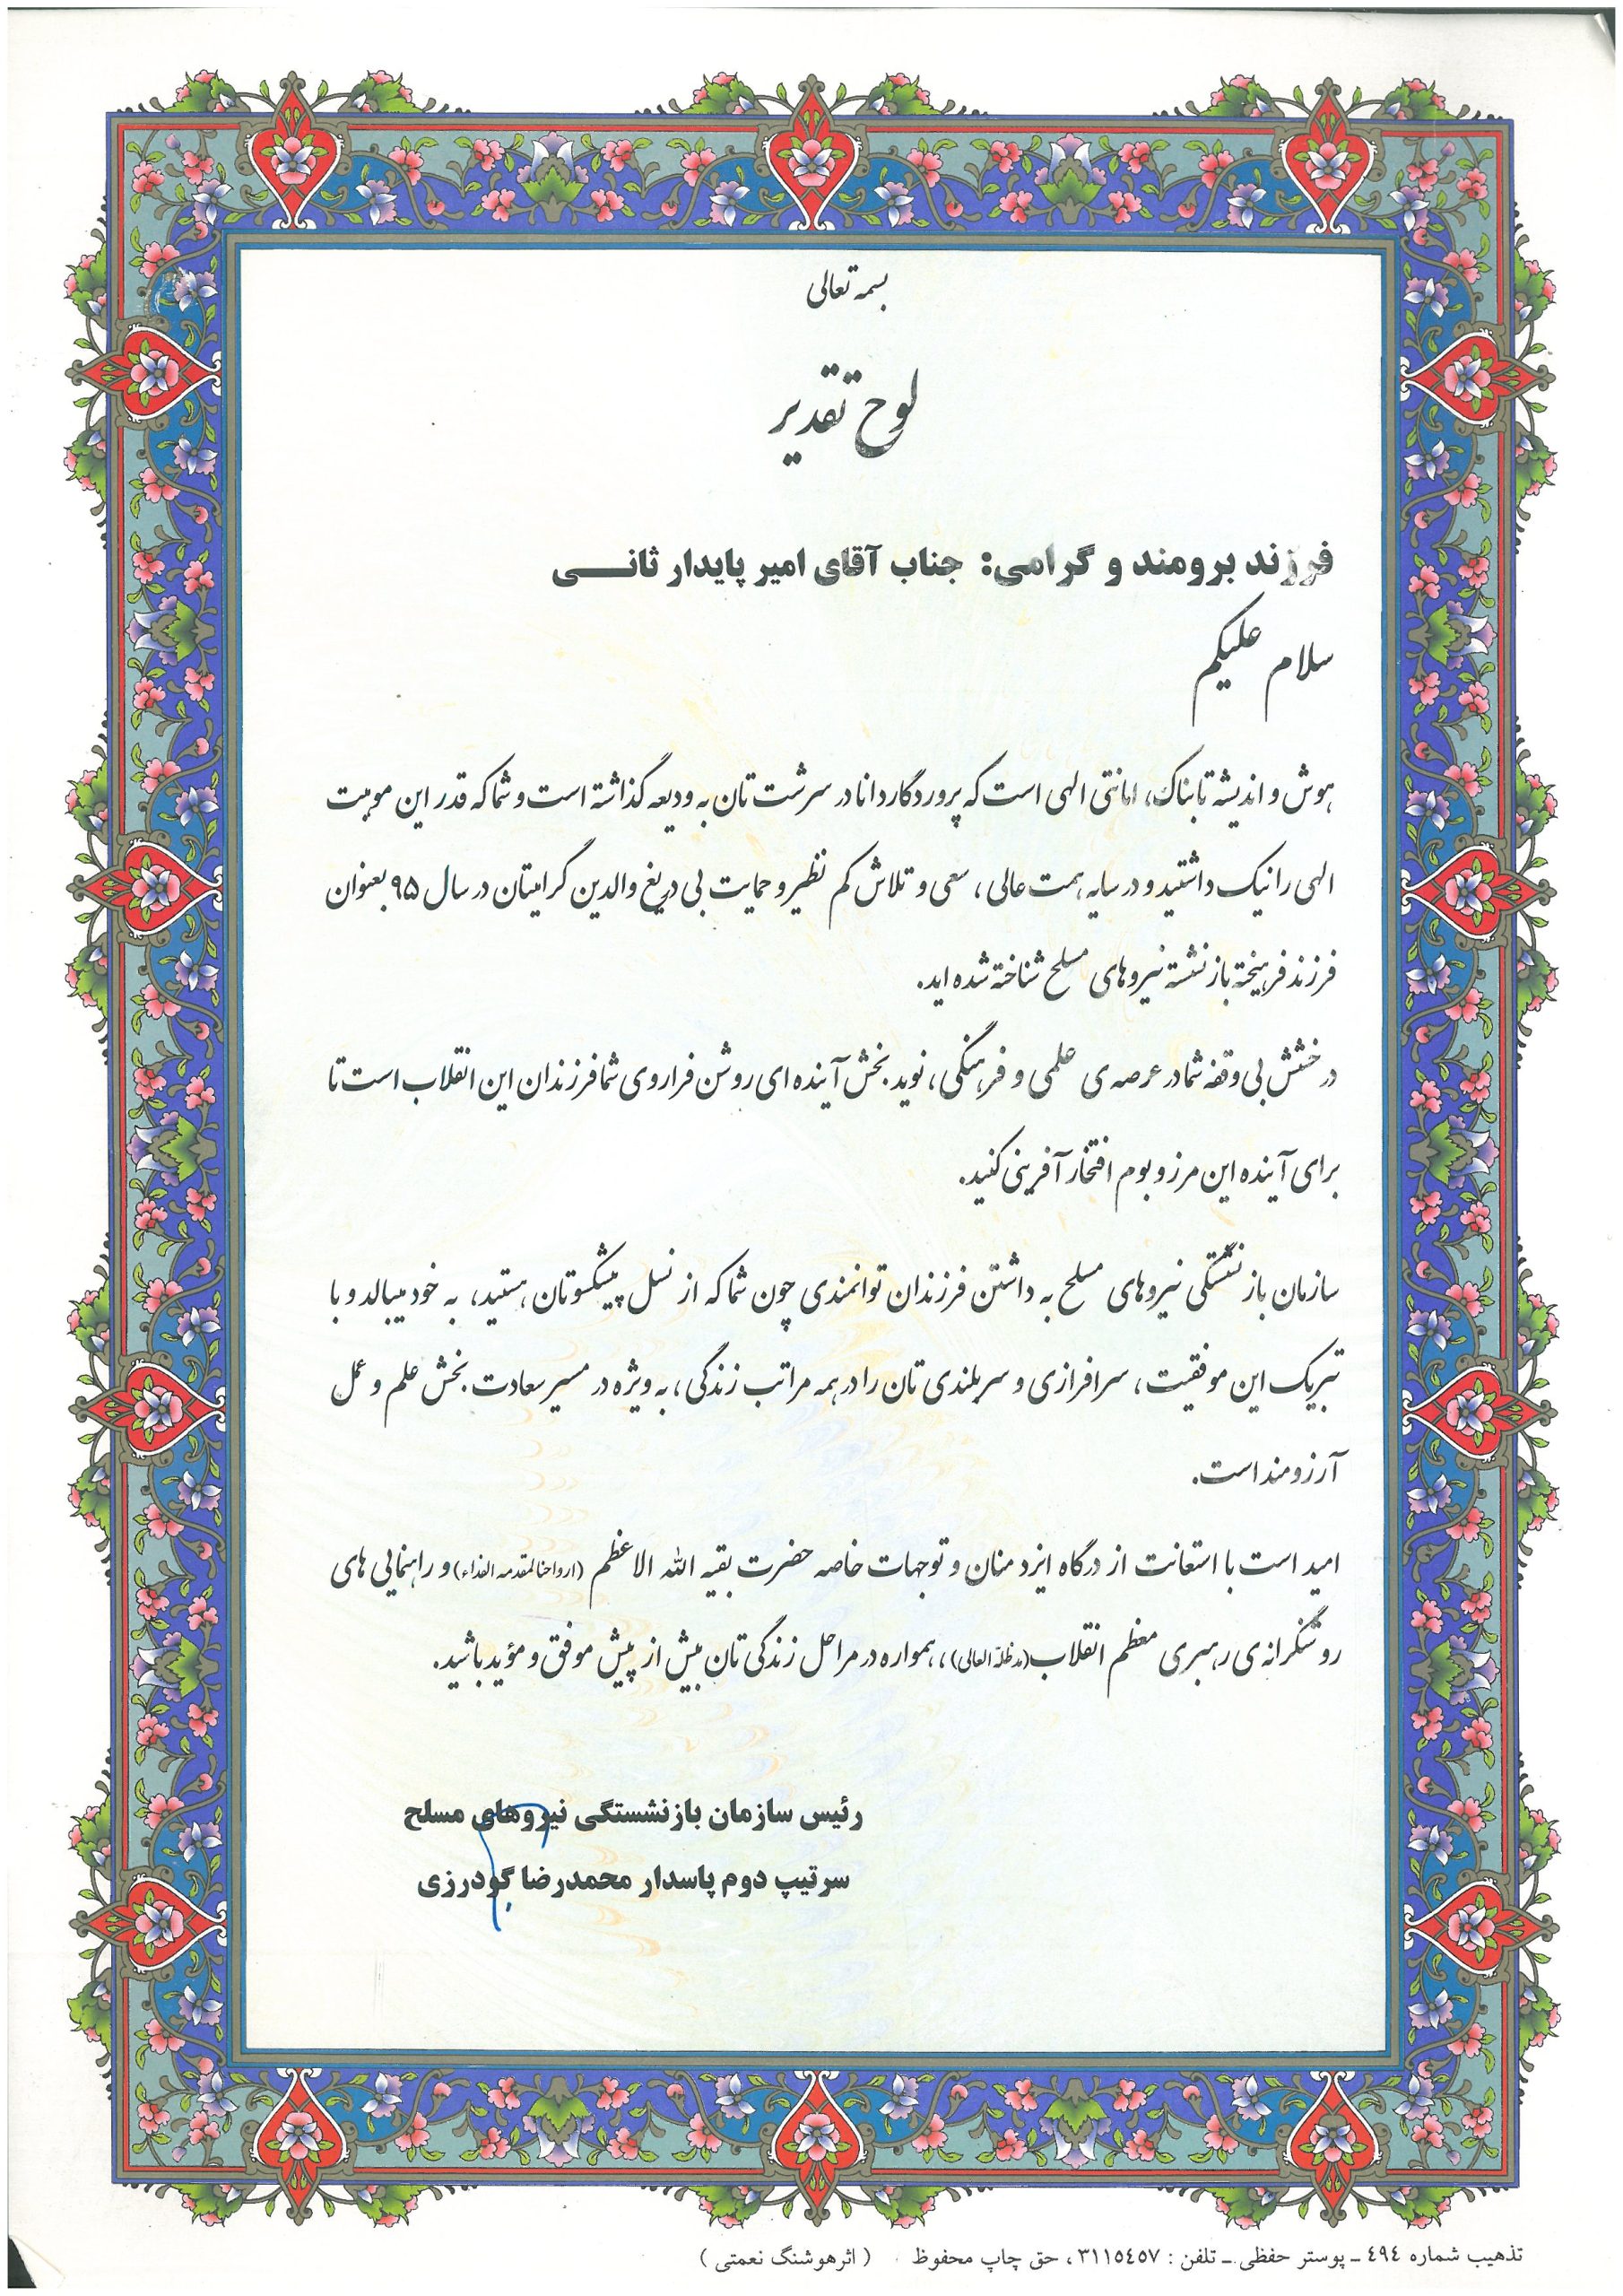 بسمه تعالی
لوح تقدیر
فرزند برومند و گرامی: جناب آقای امیر پایدار ثانـــی
سلام علیکم
هوش و اندیشه تابناک، امانتی الهی است که پروردگار دانا در سرشت تان به ودیعه گذاشته است و شما که قدر این موهبت
الهی را نیک داشتید و در سایه همت عالی، سعی و تلاش کم نظیر و حمایت بی دریغ والدین گرامیتان در سال ۹۵ بعنوان
فرزند فرهیخته بازنشسته نیروهای مسلح شناخته شده اید.
درخشش بی وقفه شما در عرصه ی علمی و فرهنگی، نوید بخش آینده ای روشن فراروی شما فرزندان این انقلاب است تا
برای آینده این مرز و بوم افتخار آفرینی کنید.
سازمان بازنشستگی نیروهای مسلح به داشتن فرزندان توانمندی چون شما که از نسل پیشکسوتان هستید، به خود میبالد و با
تبریک این موفقیت، سرافرازی و سربلندی تان را در همه مراتب زندگی، به ویژه در مسیر سعادت بخش علم و عمل
آرزومند است.
امید است با استعانت از درگاه ایزد منان و توجهات خاصه حضرت بقیه الله الاعظم (ارواحنالمقدمه الفداء) و راهنمایی های
روشنگرانه ی رهبری معظم انقلاب (مدظله العالی)، همواره در مراحل زندگی تان بیش از پیش موفق و مؤید باشید.
رئیس سازمان بازنشستگی نیروهای مسلح
سرتیپ دوم پاسدار محمدرضا گودرزی
تذهیب شماره ٤٩٤ ـ پوستر حفظی ـ تلفن : ۳۱۱۵٤۵۷ ، حق چاپ محفوظ ( اثر هوشنگ نعمتی )